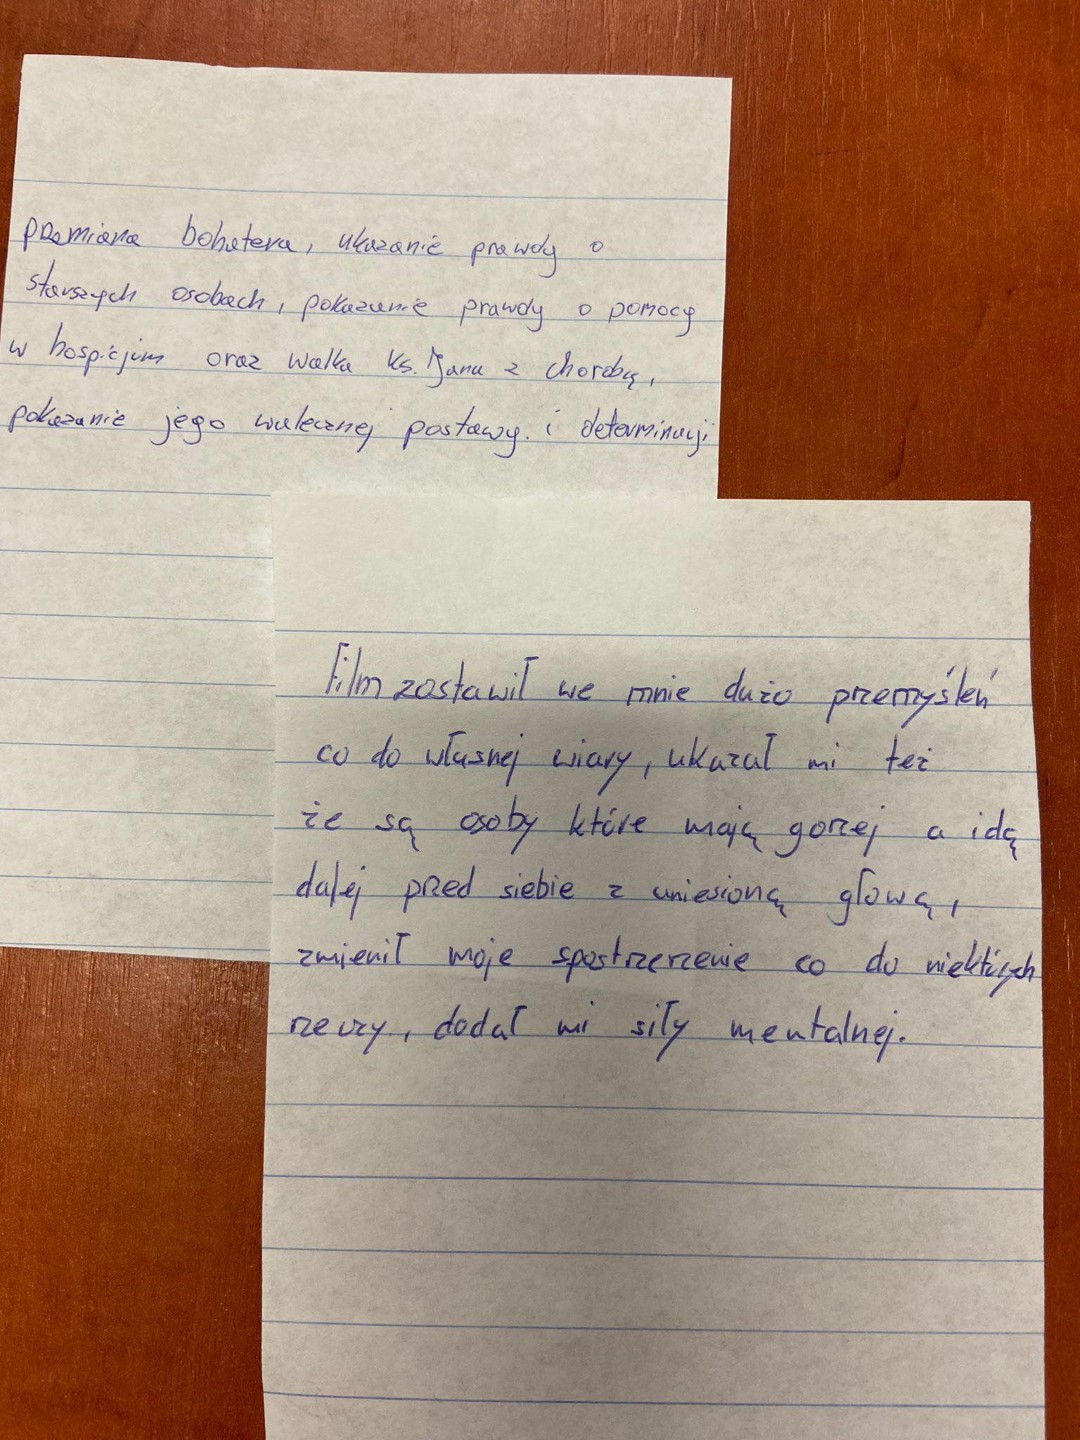 przemiana bohatera, ukazanie prawdy o
starszych osobach, pokazanie prawdy o pomocy
w hospicjum oraz walka ks. Jana z chorobą,
pokazanie jego walecznej postawy. i determinacji
Film zostawił we mnie dużo przemyśleń
co do własnej wiary, ukazał mi też
że są osoby które mają gorzej a idą
dalej przed siebie z uniesioną głową,
zmienił moje spostrzerzenie co do niektórych
rzeczy, dodał mi siły mentalnej.